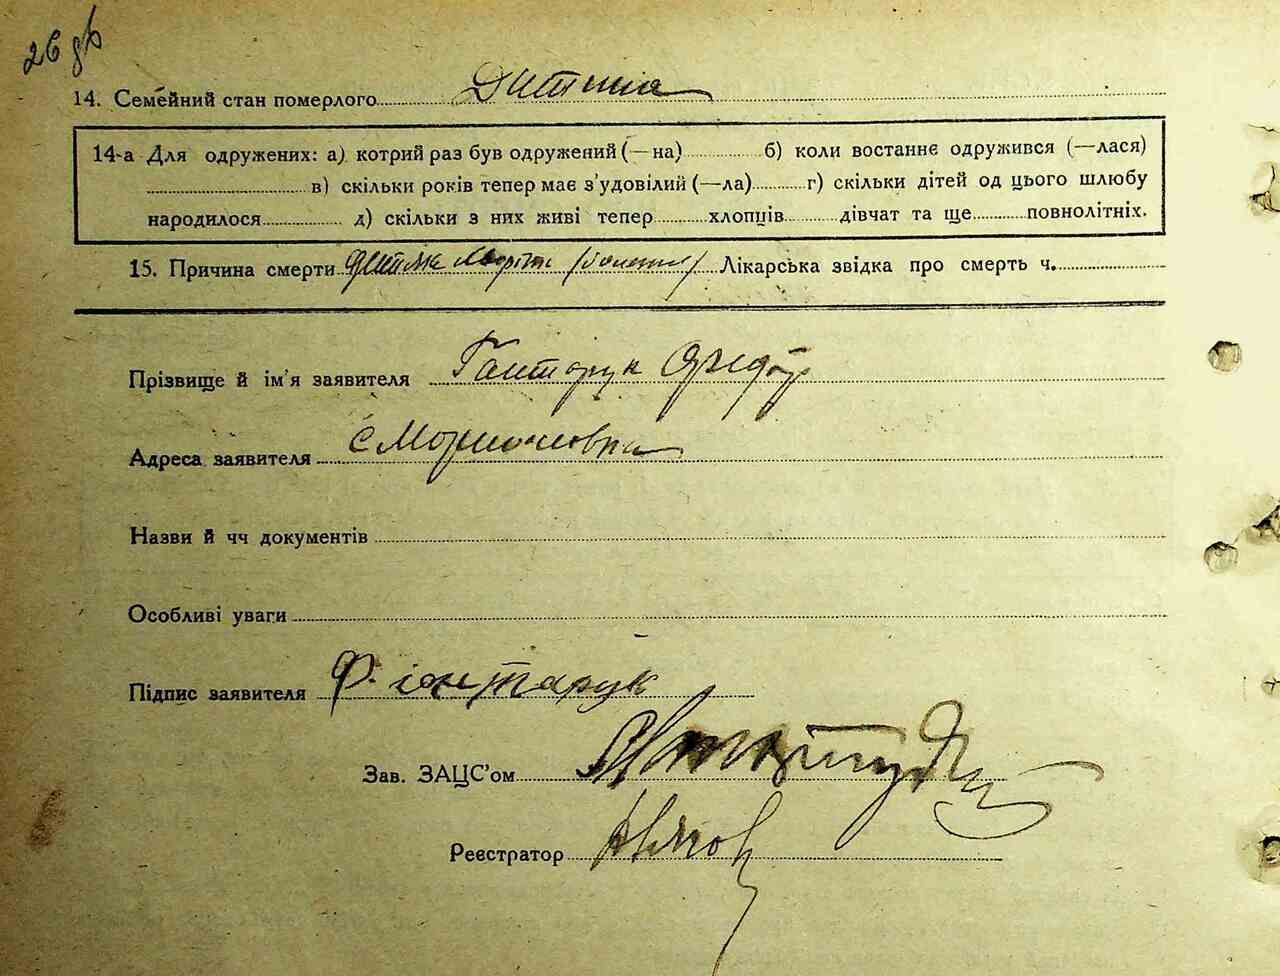 26 зв
14. Семейний стан померлого Дитина
14-а Для одружених: а) котрий раз був одружений (—на) б) коли востаннє одружився (—лася)
в) скільки років тепер має з'удовілий (—ла) г) скільки дітей од цього шлюбу
народилося д) скільки з них живі тепер хлопців дівчат та ще повнолітніх.
15. Причина смерти Лікарська звідка про смерть ч.
Прізвище й ім'я заявителя Гонтарук Федір
Адреса заявителя с
Назви й чч документів
Особливі уваги
Підпис заявителя Ф. Гонтарук
Зав. ЗАЦС'ом
Реєстратор